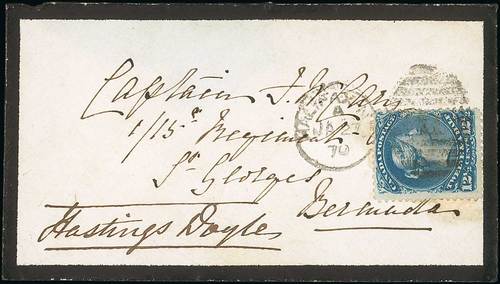 Captain J. W. Carr
1/15th Regiment
St Georges
Bermuda
Hastings Doyle
A
JA
70
CANADA POSTAGE
12½